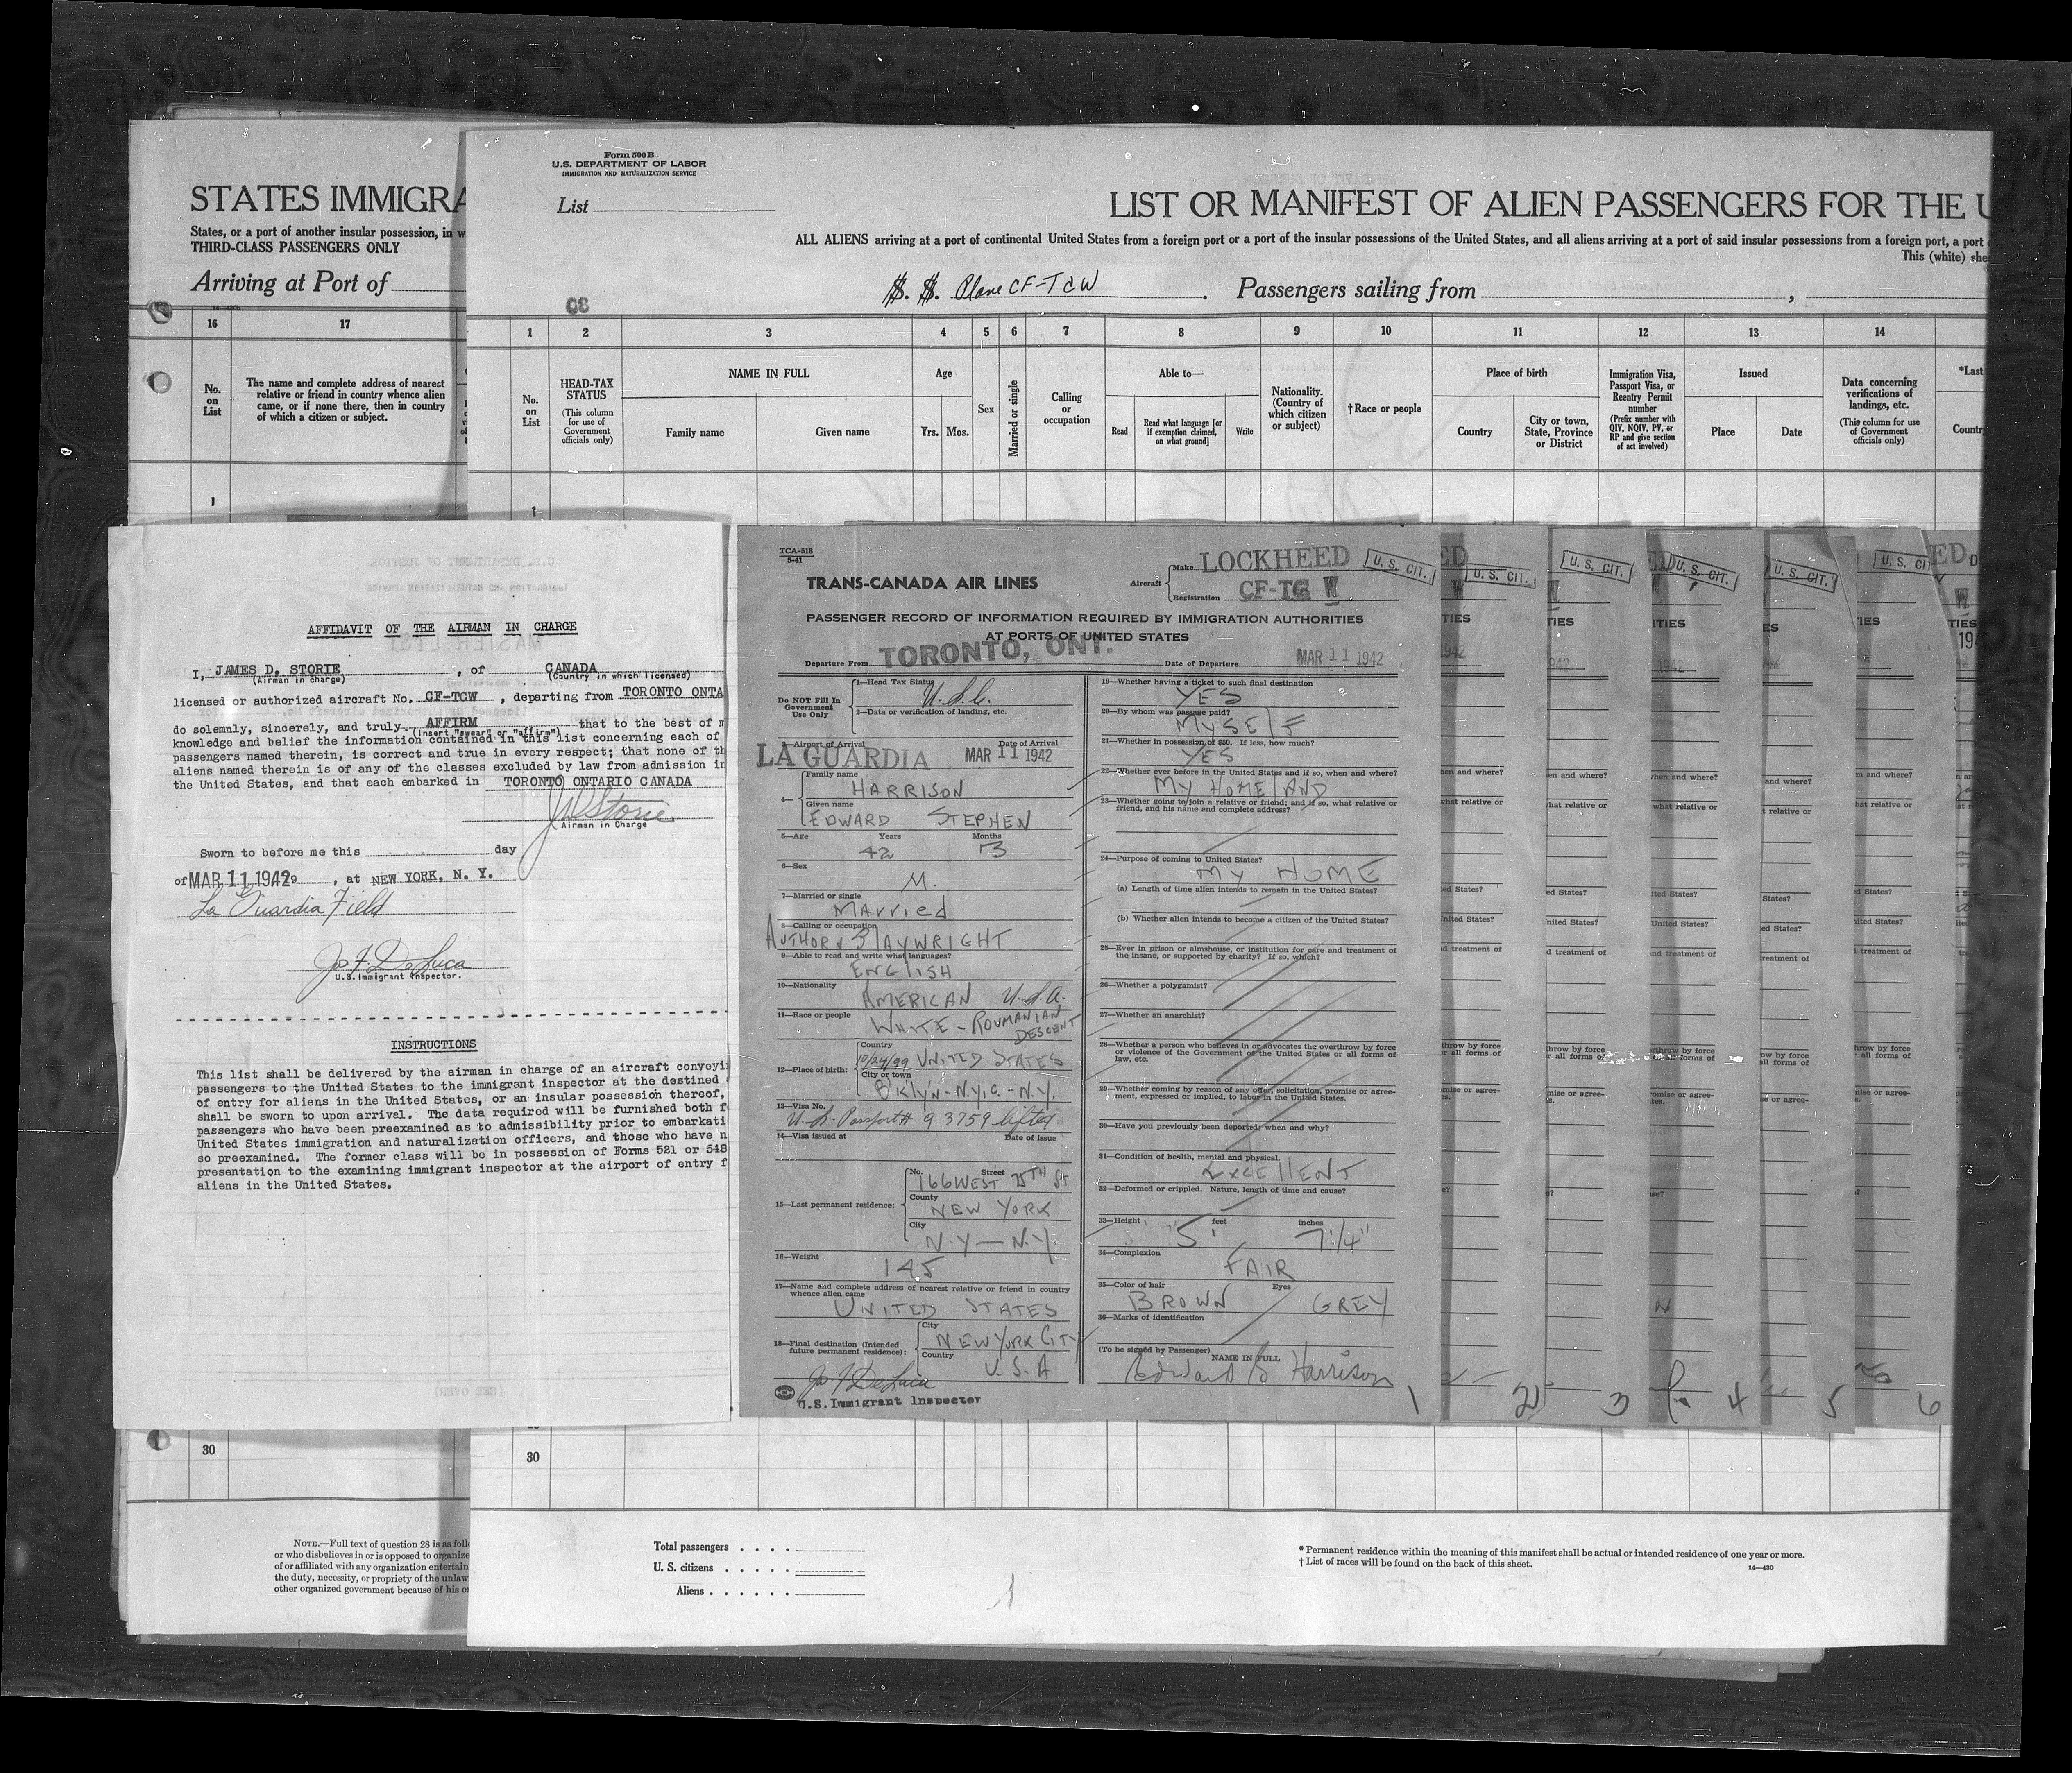 STATES IMMIGRA
States, or a port of another insular possession, in w
THIRD-CLASS PASSENGERS ONLY
Arriving at Port of
16 17
No. on List
The name and complete address of nearest
relative or friend in country whence alien
came, or if none there, then in country
of which a citizen or subject.
1
30
NOTE.—Full text of question 28 is as foll
or who disbelieves in or is opposed to organize
of or affiliated with any organization entertain
the duty, necessity, or propriety of the unlaw
other organized government because of his or
Form 500B
U.S. DEPARTMENT OF LABOR
IMMIGRATION AND NATURALIZATION SERVICE
List
LIST OR MANIFEST OF ALIEN PASSENGERS FOR THE U
ALL ALIENS arriving at a port of continental United States from a foreign port or a port of the insular possessions of the United States, and all aliens arriving at a port of said insular possessions from a foreign port, a port
This (white) she
S. S. Plane CF-TCW . Passengers sailing from ,
1 2 3 4 5 6 7 8 9 10 11 12 13 14
No. on List
HEAD-TAX STATUS
(This column for use of Government officials only)
NAME IN FULL
Family name Given name
Age
Yrs. Mos.
Sex
Married or single
Calling or occupation
Able to—
Read
Read what language [or if exemption claimed, on what ground]
Write
Nationality. (Country of which citizen or subject)
†Race or people
Place of birth
Country
City or town, State, Province or District
Immigration Visa, Passport Visa, or Reentry Permit number
(Prefix number with QIV, NQIV, PV, or RP and give section of act involved)
Issued
Place Date
Data concerning verifications of landings, etc.
(This column for use of Government officials only)
*Last
Countr
1
30
Total passengers . . . .
U. S. citizens . . . . .
Aliens . . . . . .
* Permanent residence within the meaning of this manifest shall be actual or intended residence of one year or more.
† List of races will be found on the back of this sheet.
14—430
AFFIDAVIT OF THE AIRMAN IN CHARGE
I, JAMES D. STORIE , of CANADA
(Airman in charge) (Country in which licensed)
licensed or authorized aircraft No. CF-TCW , departing from TORONTO ONTA
do solemnly, sincerely, and truly AFFIRM that to the best of m
(insert "swear" or "affirm")
knowledge and belief the information contained in this list concerning each of
passengers named therein, is correct and true in every respect; that none of th
aliens named therein is of any of the classes excluded by law from admission in
the United States, and that each embarked in TORONTO ONTARIO CANADA
JD Storie
Airman in Charge
Sworn to before me this day
of MAR 11 1942 , at NEW YORK, N. Y.
La Guardia Field
Jos F. DeLuca
U.S. Immigrant Inspector.
INSTRUCTIONS
This list shall be delivered by the airman in charge of an aircraft conveyi
passengers to the United States to the immigrant inspector at the destined
of entry for aliens in the United States, or an insular possession thereof,
shall be sworn to upon arrival. The data required will be furnished both f
passengers who have been preexamined as to admissibility prior to embarkati
United States immigration and naturalization officers, and those who have n
so preexamined. The former class will be in possession of Forms 521 or 548
presentation to the examining immigrant inspector at the airport of entry f
aliens in the United States.
TCA-518
5-41
TRANS-CANADA AIR LINES
Aircraft
Make LOCKHEED
Registration CF-TC W
U. S. CIT.
PASSENGER RECORD OF INFORMATION REQUIRED BY IMMIGRATION AUTHORITIES
AT PORTS OF UNITED STATES
Departure From TORONTO, ONT. Date of Departure MAR 11 1942
Do NOT Fill In
Government
Use Only
1—Head Tax Status U.S.C.
2—Data or verification of landing, etc.
3—Airport of Arrival Date of Arrival
LA GUARDIA MAR 11 1942
4—
Family name
HARRISON
Given name
EDWARD STEPHEN
5—Age Years Months
42 3
6—Sex
M.
7—Married or single
MArried
8—Calling or occupation
AUTHOR & PLAYWRIGHT
9—Able to read and write what languages?
ENGlISH
10—Nationality
AMERICAN U.S.A.
11—Race or people
WHITE - ROUMANIAN DESCENT
12—Place of birth:
Country
10/24/99 UNITED STATES
City or town
B'Klyn - N.Y.C. - N.Y.
13—Visa No.
U.S. Passport # 93759 lifted
14—Visa issued at Date of issue
15—Last permanent residence:
No. Street
166 WEST 75TH ST
County
NEW YORK
City
N.Y — N.Y.
16—Weight
145
17—Name and complete address of nearest relative or friend in country
whence alien came
UNITED STATES
18—Final destination (Intended
future permanent residence):
City
NEW YORK CITY
Country
U. S. A
Jos F DeLuca
U.S. Immigrant Inspector
19—Whether having a ticket to such final destination
YES
20—By whom was passage paid?
MYSElF
21—Whether in possession of $50. If less, how much?
YES
22—Whether ever before in the United States and if so, when and where?
MY HOME LAND
23—Whether going to join a relative or friend; and if so, what relative or
friend, and his name and complete address?
24—Purpose of coming to United States?
MY HOME
(a) Length of time alien intends to remain in the United States?
(b) Whether alien intends to become a citizen of the United States?
25—Ever in prison or almshouse, or institution for care and treatment of
the insane, or supported by charity? If so, which?
26—Whether a polygamist?
27—Whether an anarchist?
28—Whether a person who believes in or advocates the overthrow by force
or violence of the Government of the United States or all forms of
law, etc.
29—Whether coming by reason of any offer, solicitation, promise or agree-
ment, expressed or implied, to labor in the United States.
30—Have you previously been deported; when and why?
31—Condition of health, mental and physical.
EXCEllENT
32—Deformed or crippled. Nature, length of time and cause?
33—Height feet inches
5' 7 1/4"
34—Complexion
FAIR
35—Color of hair Eyes
BROWN GREY
36—Marks of identification
(To be signed by Passenger)
NAME IN FULL
Edward S Harrison
1 2 3 4 5 6
U. S. CIT.
U. S. CIT.
U. S. CIT.
U. S. CIT.
U. S. CIT